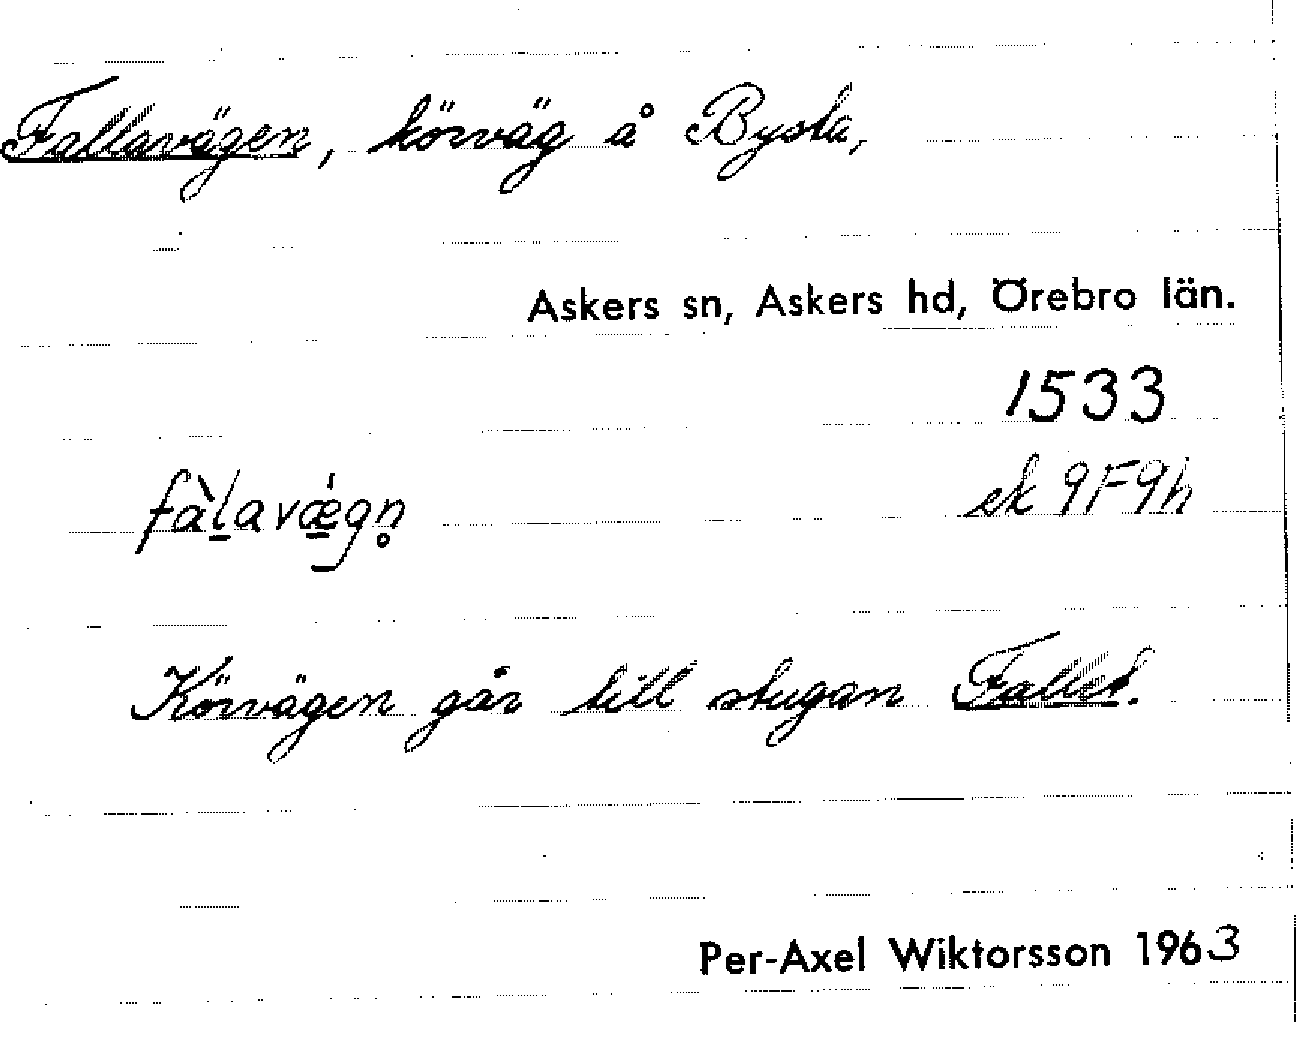 Fallavägen, körväg å Bysta,
Askers sn, Askers hd, Örebro län.
1533
fàl̠avǽ̠gn̥
ek 9F9h
Körvägen går till stugan Fallet.
Per-Axel Wiktorsson 1963